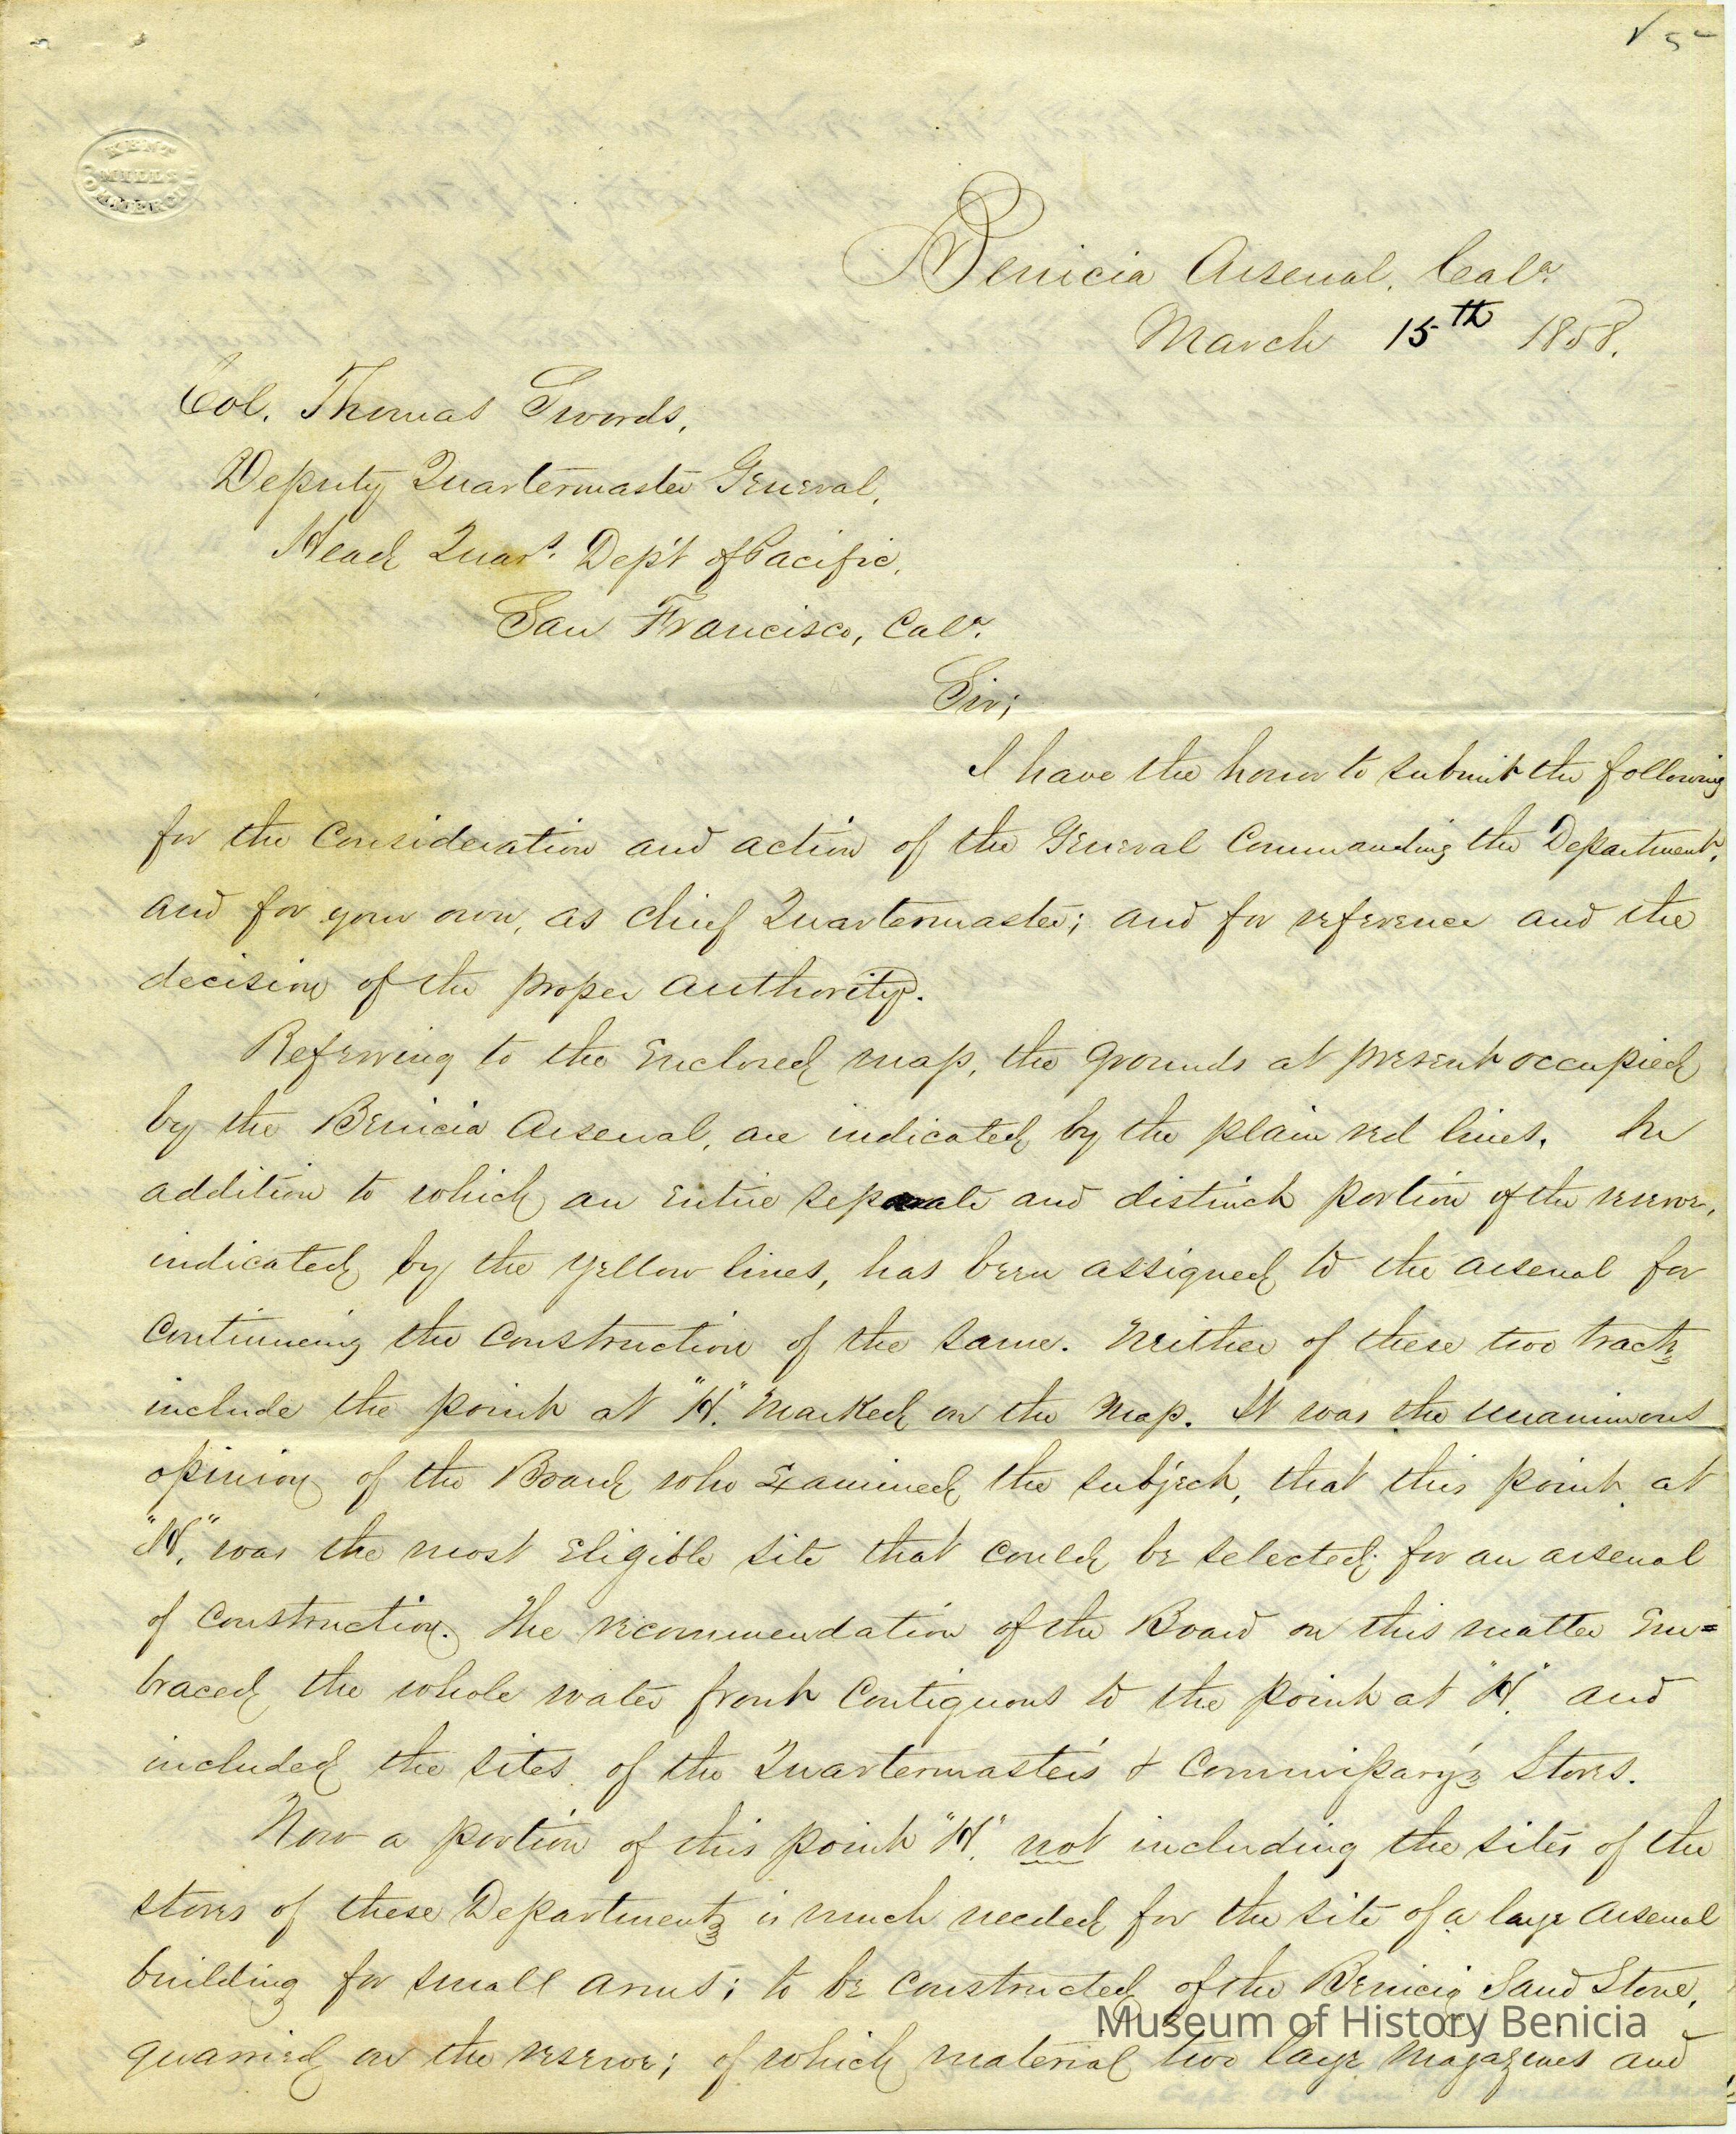 √ 5
KENT
MILLS
Benicia Arsenal, Cala.
March 15th 1858.
Col. Thomas Swords,
Deputy Quartermaster General,
Head Quars. Dep't of Pacific,
San Francisco, Cala.
Sir;
I have the honor to submit the following
for the Consideration and action of the General Commanding the Department,
and for your own, as chief Quartermaster; and for reference and the
decision of the proper authority.
Referring to the Enclosed map, the grounds at present occupied
by the Benicia Arsenal, are indicated by the plain red lines. In
addition to which an entire separate and distinct portion of the reserve,
indicated by the yellow lines, has been assigned to the arsenal for
Continueing the Construction of the same. Neither of these two tracts
include the point at "H." marked on the map. It was the unanimous
opinion of the Board who Examined the subject, that this point at
"H," was the most Eligible site that could be selected for an arsenal
of Construction. The recommendation of the Board on this matter Em=
braced the whole water front Contiguous to the point at "H." and
included the sites of the Quartermaster's & Commissary's Stores.
Now a portion of this point "H." not including the sites of the
stores of these Departments is much needed for the site of a large Arsenal
building for small arms; to be constructed of the Benicia Sand Stone,
quarried on the reserve; of which material two large Magazines and
Museum of History Benicia